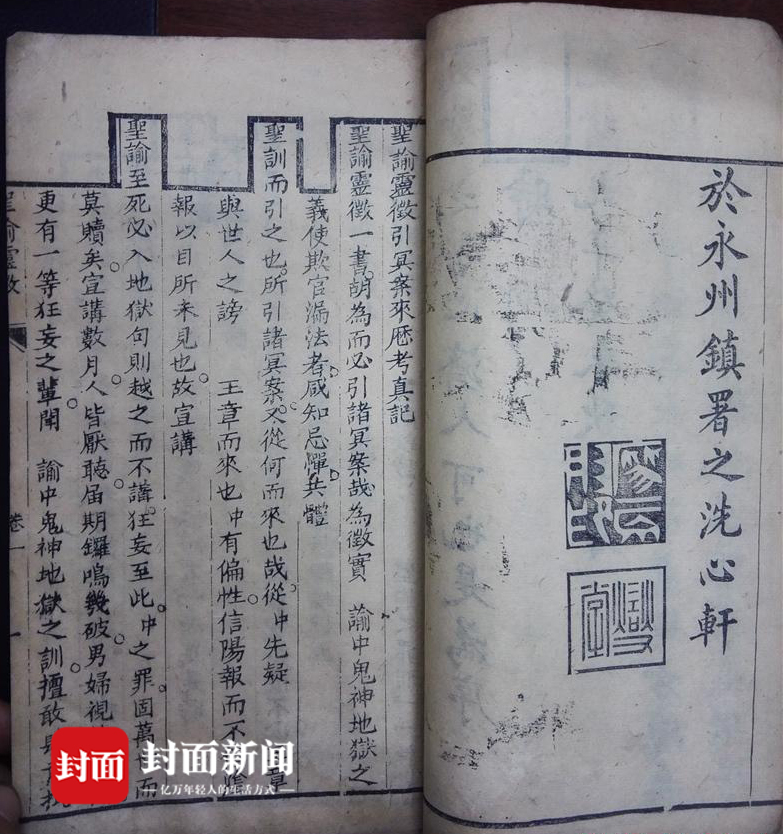 於永州鎮署之洗心軒
聖諭靈徵引冥案來歷考真記
聖諭靈徵一書胡為而必引諸冥案哉為徵實 諭中鬼神地獄之
義使欺官漏法者咸知忌憚共體
聖訓而引之也所引諸冥案又從何而來也哉從中先疑章
與世人之謗 王章而來也中有偏性信陽報而不
報以目所未見也故宣講
聖諭至死必入地獄句則越之而不講狂妄至此中之罪固萬而
莫贖矣宣講數月人皆厭聽屆期鑼鳴幾破男婦視
更有一等狂妄之輩聞 諭中鬼神地獄之訓擅敢
聖諭靈徵
卷一
一
封面
封面新闻
亿万年轻人的生活方式